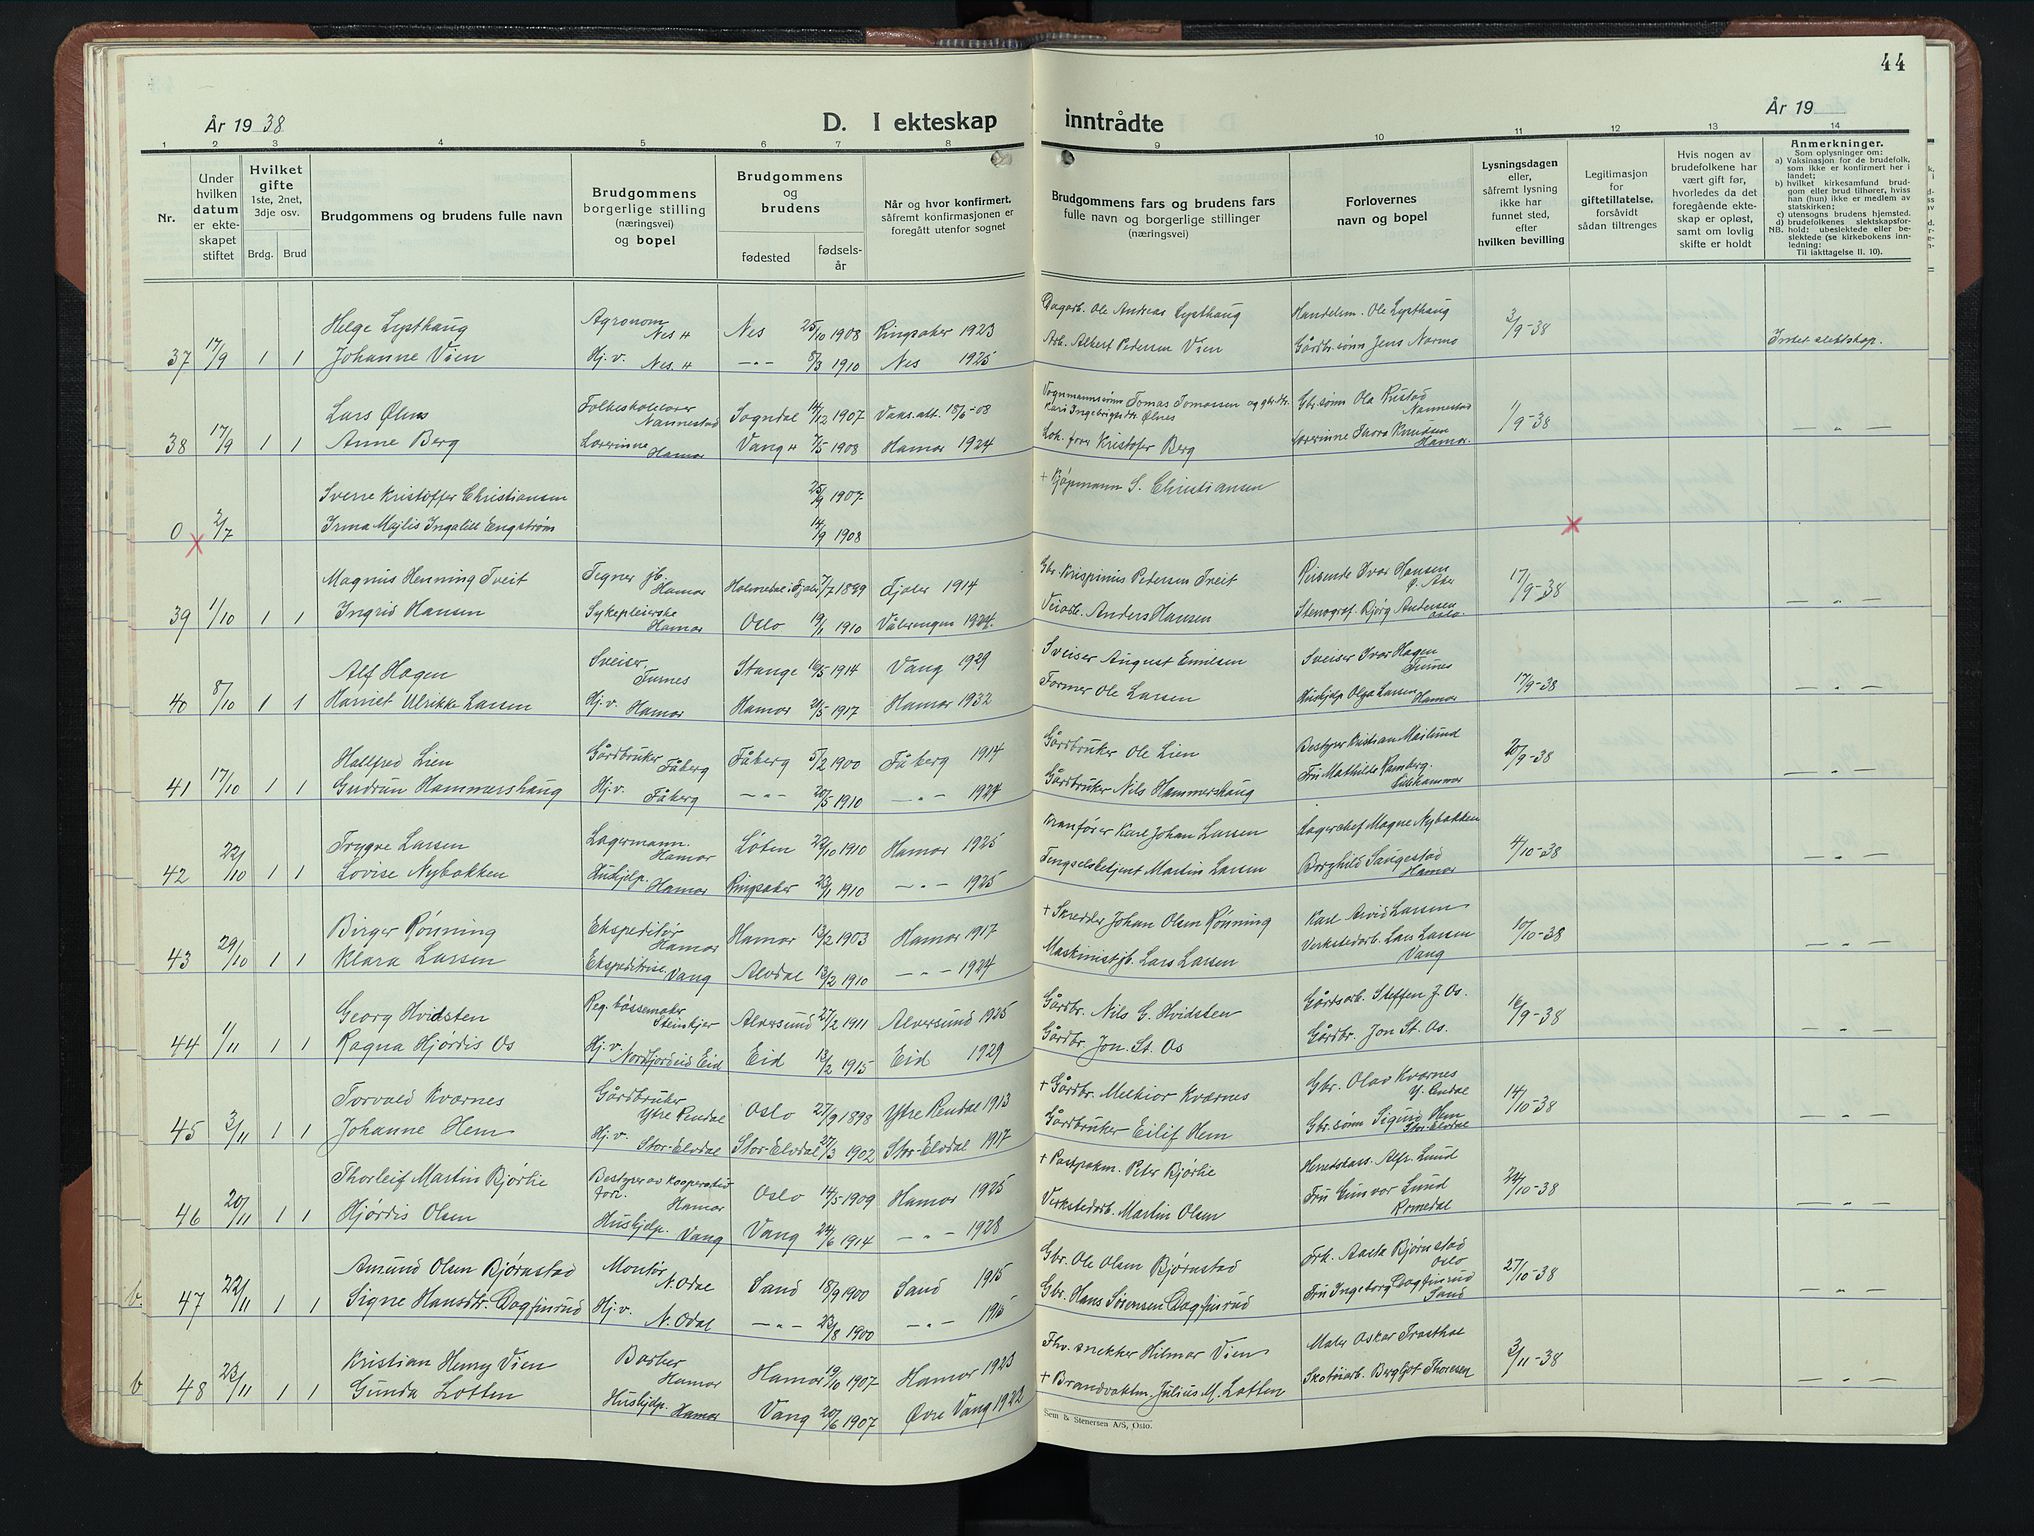 44
År 1938
D. I ekteskap inntrådte
År 19
1 2 3 4 5 6 7 8 9 10 11 12 13 14
Nr.
Under hvilken datum er ekteskapet stiftet
Hvilket gifte 1ste, 2net, 3dje osv.
Brdg. Brud
Brudgommens og brudens fulle navn
Brudgommens borgerlige stilling (næringsvei) og bopel
Brudgommens og brudens
fødested
fødselsår
Når og hvor konfirmert, såfremt konfirmasjonen er foregått utenfor sognet
Brudgommens fars og brudens fars fulle navn og borgerlige stillinger (næringsvei)
Forlovernes navn og bopel
Lysningsdagen eller, såfremt lysning ikke har funnet sted, efter hvilken bevilling
Legitimasjon for giftetillatelse, forsåvidt sådan tiltrenges
Hvis nogen av brudefolkene har vært gift før, hvorledes da det foregående ekteskap er opløst, samt om lovlig skifte er holdt
Anmerkninger.
Som oplysninger om:
a) Vaksinasjon for de brudefolk, som ikke er konfirmert her i landet;
b) hvilket kirkesamfund brudgom eller brud tilhører, hviss han (hun) ikke er medlem av statskirken;
c) utensogns brudens hjemsted.
d) brudefolkenes slektskapsforhold: ubeslektede eller beslektede (se kirkebokens innledning:
NB.
Til iakttagelse II. 10).
Helge Lysthaug Agronom Nes H Nes 25/10 1908 Ringsaker 1923 Dagarb. Ole Andreas Lysthaug Handelsm. Ole Lysthaug 3/9-38
37 17/9 1 1 Johanne Vien Hj.v. Nes. H —"— 8/3 1910 Nes 1925 Arb. Albert Pedersen Vien Gårdbr.sønn Jens Narmo Intet slektskap.
Lars Ølnes Folkeskolelærer Nannestad Sogndal 14/12 1907 Vaks.att. 18/6-08 Vognmannssønn Tomas Tomassen og gbr.dtr. Kari Ingebrigtsdtr. Ølnes Gbr.sønn Ola Rustad Nannestad 1/9-38
38 17/9 1 1 Anne Berg Lærerinne Hamar Vang H 7/5 1908 Hamar 1924 Lok.fører Kristofer Berg Lærerinne Thora Knudsen Hamar. — " —
Sverre Kristoffer Christiansen 25/9 1907 + Kjøpmann S. Christiansen
0 2/7 Irma Majlis Ingalill Engstrøm 14/9 1908
Magnus Henning Tveit Tegner jb. Hamar Holmedal i Fjaler 7/7 1899 Fjaler 1914 Gbr. Krispinus Pedersen Tveit Reisende Ivar Hansen Ø. Aker 17/9-38
39 1/10 1 1 Ingrid Hansen Sykepleierske Hamar Oslo 19/11 1910 Vålerengen 1924. Veiarb. Anders Hansen Stenograf. Bjørg Andersen Oslo. — " —
Alf Hagen Sveiser Furnes Stange 16/5 1914 Vang 1929 Sveiser August Emilsen Sveiser Ivar Hagen Furnes 17/9-38
40 8/10 1 1 Harriet Ulrikke Larsen Hj.v. Hamar Hamar 21/5 1917 Hamar 1932 Former Ole Larsen Hushjelp Olga Larsen Hamar — " —
Hallfred Lien Gårdbruker Fåberg Fåberg 5/2 1900 Fåberg 1914 Gårdbruker Ole Lien Bestyrer Kristian Mæilund 20/9-38
41 17/10 1 1 Gudrun Hammershaug Hj.v. Fåberg —"— 20/5 1910 —"— 1924 Gårdbruker Nils Hammershaug Fru Mathilde Ramberg. Lillehammer — " —
Trygve Larsen Lagermann. Hamar Løten 22/10 1910 Hamar 1925 Kranfører Karl Johan Larsen Lagerchef Magne Nybakken 4/10-38
42 22/10 1 1 Lovise Nybakken Hushjelp. Hamar Ringsaker 23/11 1910 —"— 1925 Fengselsbetjent Martin Larsen Borghild Saugestad Hamar — " —
Birger Rønning Ekspeditør Hamar Hamar 13/2 1903 Hamar 1917 + Skredder Johan Olsen Rønning Karl Arvid Larsen 10/10-38
43 29/10 1 1 Klara Larsen Ekspeditrise Vang Alvdal 13/2 1910 —"— 1924 Maskinistjb. Lars Larsen Verkstedarb. Lars Larsen Vang — " —
Georg Hvidsten Reg.bøssemaker Steinkjer Alversund 27/2 1911 Alversund 1925 Gårdbr. Nils G. Hvidsten Gårdsarb. Steffen J. Os. 16/9-38
44 1/11 1 1 Ragna Hjørdis Os Hj.v. Nordfjordeid Eid Eid 13/2 1915 Eid 1929 Gårdbr. Jon. St. Os Gårdbr. Jon St. Os. — " —
Torvald Kværnes Gårdbruker Ytre Rendal Oslo 27/9 1898 Ytre Rendal 1913 + Gårdbr. Melkior Kværnes Gbr. Olav Kværnes Y. Rendal 14/10-38
45 3/11 1 1 Johanne Hem Hj.v. Stor-Elvdal Stor-Elvdal 27/3 1902 Stor-Elvdal 1917 Gårdbruker Eilif Hem Gbr.sønn Sigurd Hem Stor-Elvdal — " —
Thorleif Martin Bjørlie Bestyrer av kooperativ forr. Hamar Oslo 14/5 1909 Hamar 1925 + Postpakm. Peter Bjørlie Herredskass. Alfr. Lund 22/10-38
46 20/11 1 1 Hjørdis Olsen Hushjelp. Vang Vang 24/6 1914 —"— 1928 Verkstedarb. Martin Olsen Fru Gunvor Lund Romedal — " —
Amund Olsen Bjørnstad Montør N. Odal Sand 18/9 1900 Sand 1915 Gbr. Ole Olsen Bjørnstad Frk. Aasta Bjørnstad Oslo 27/10-38
b. 47 22/11 1 1 Signe Hansdtr. Dagfinrud Hj.v. N. Odal —"— 23/8 1900 —"— 1915 Gbr. Hans Sørensen Dagfinrud Fru Ingeborg Dagfinrud Sand — " —
Kristian Henry Vien Barber Hamar Hamar 19/10 1907 Hamar 1923 Fhv. snekker Hilmar Vien Maler Oskar Trosthol 3/11-38
b 48 23/11 1 1 Gunda Lotten Hushjelp. Hamar Vang 20/6 1907 Øvre Vang 1922 + Brandvaktm. Julius M. Lotten Skotøiarb. Bergljot Thoresen — " —
Sem & Stenersen A/S, Oslo.